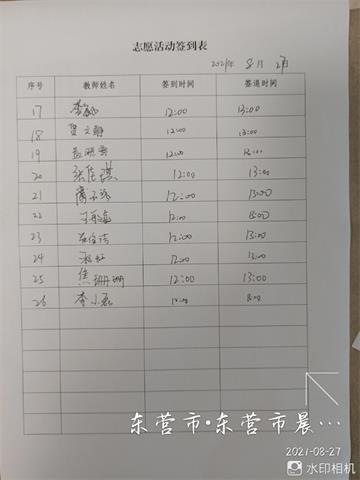 志愿活动签到表
2021年 8月 27日
序号 教师姓名 签到时间 签退时间
17 12:00 13:00
18 贾文 12:00 13:00
19 孟 12:00 13:00
20 张佳琪 12:00 13:00
21 12:00 13:00
22 12:00 13:00
23 12:00 13:00
24 12:00 13:00
25 焦珊珊 12:00 13:00
26 李小磊 12:00 13:00
东营市·东营市晨…
2021-08-27
水印相机